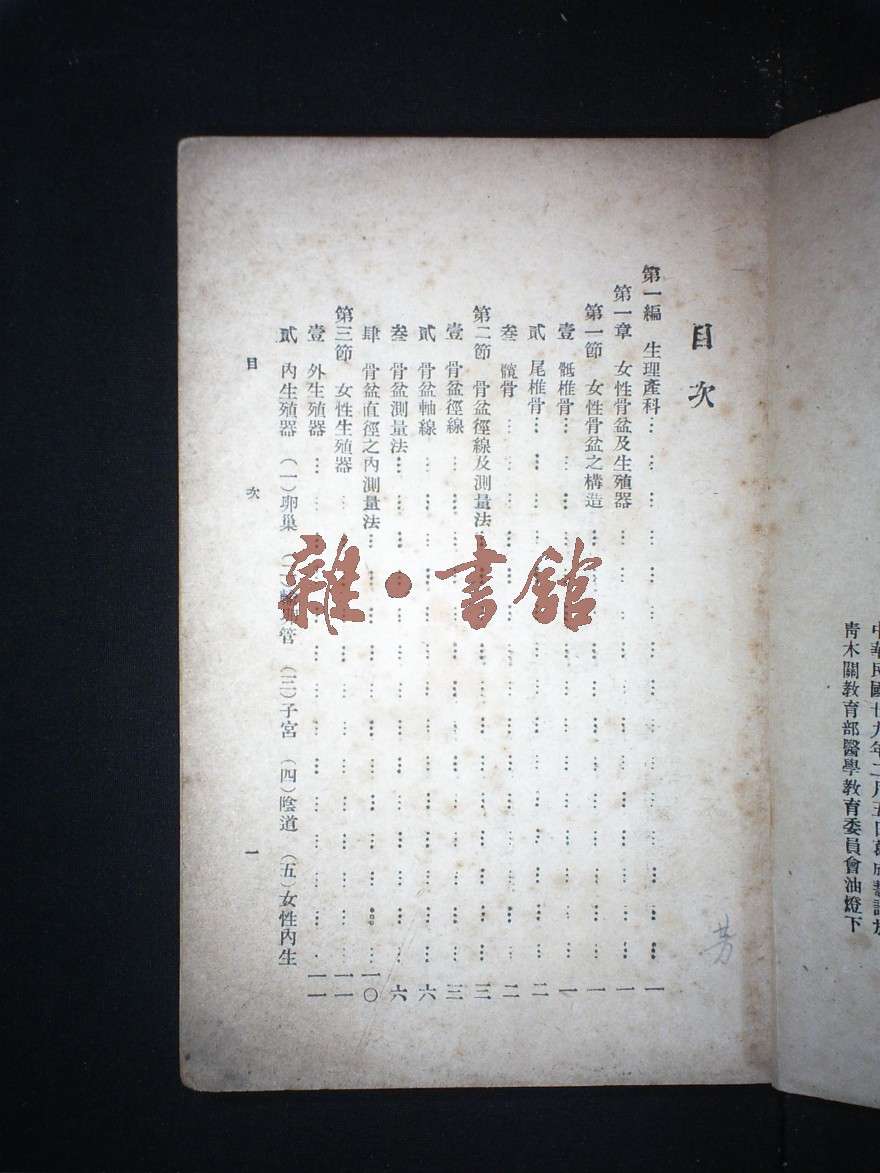 中華民國廿九年二月五日葛成慧識於
青木關教育部醫學教育委員會油燈下
目次
第一編 生理產科………一
第一章 女性骨盆及生殖器………一
第一節 女性骨盆之構造………一
壹 骶椎骨………一
貳 尾椎骨………二
叁 髖骨………二
第二節 骨盆徑線及測量法………三
壹 骨盆徑線………三
貳 骨盆軸線………六
叁 骨盆測量法………六
肆 骨盆直徑之內測量法………一〇
第三節 女性生殖器………一一
壹 外生殖器………一一
貳 內生殖器 (一)卵巢 (二)輸卵管 (三)子宮 (四)陰道 (五)女性內生
目次 一
雜·書館
芳